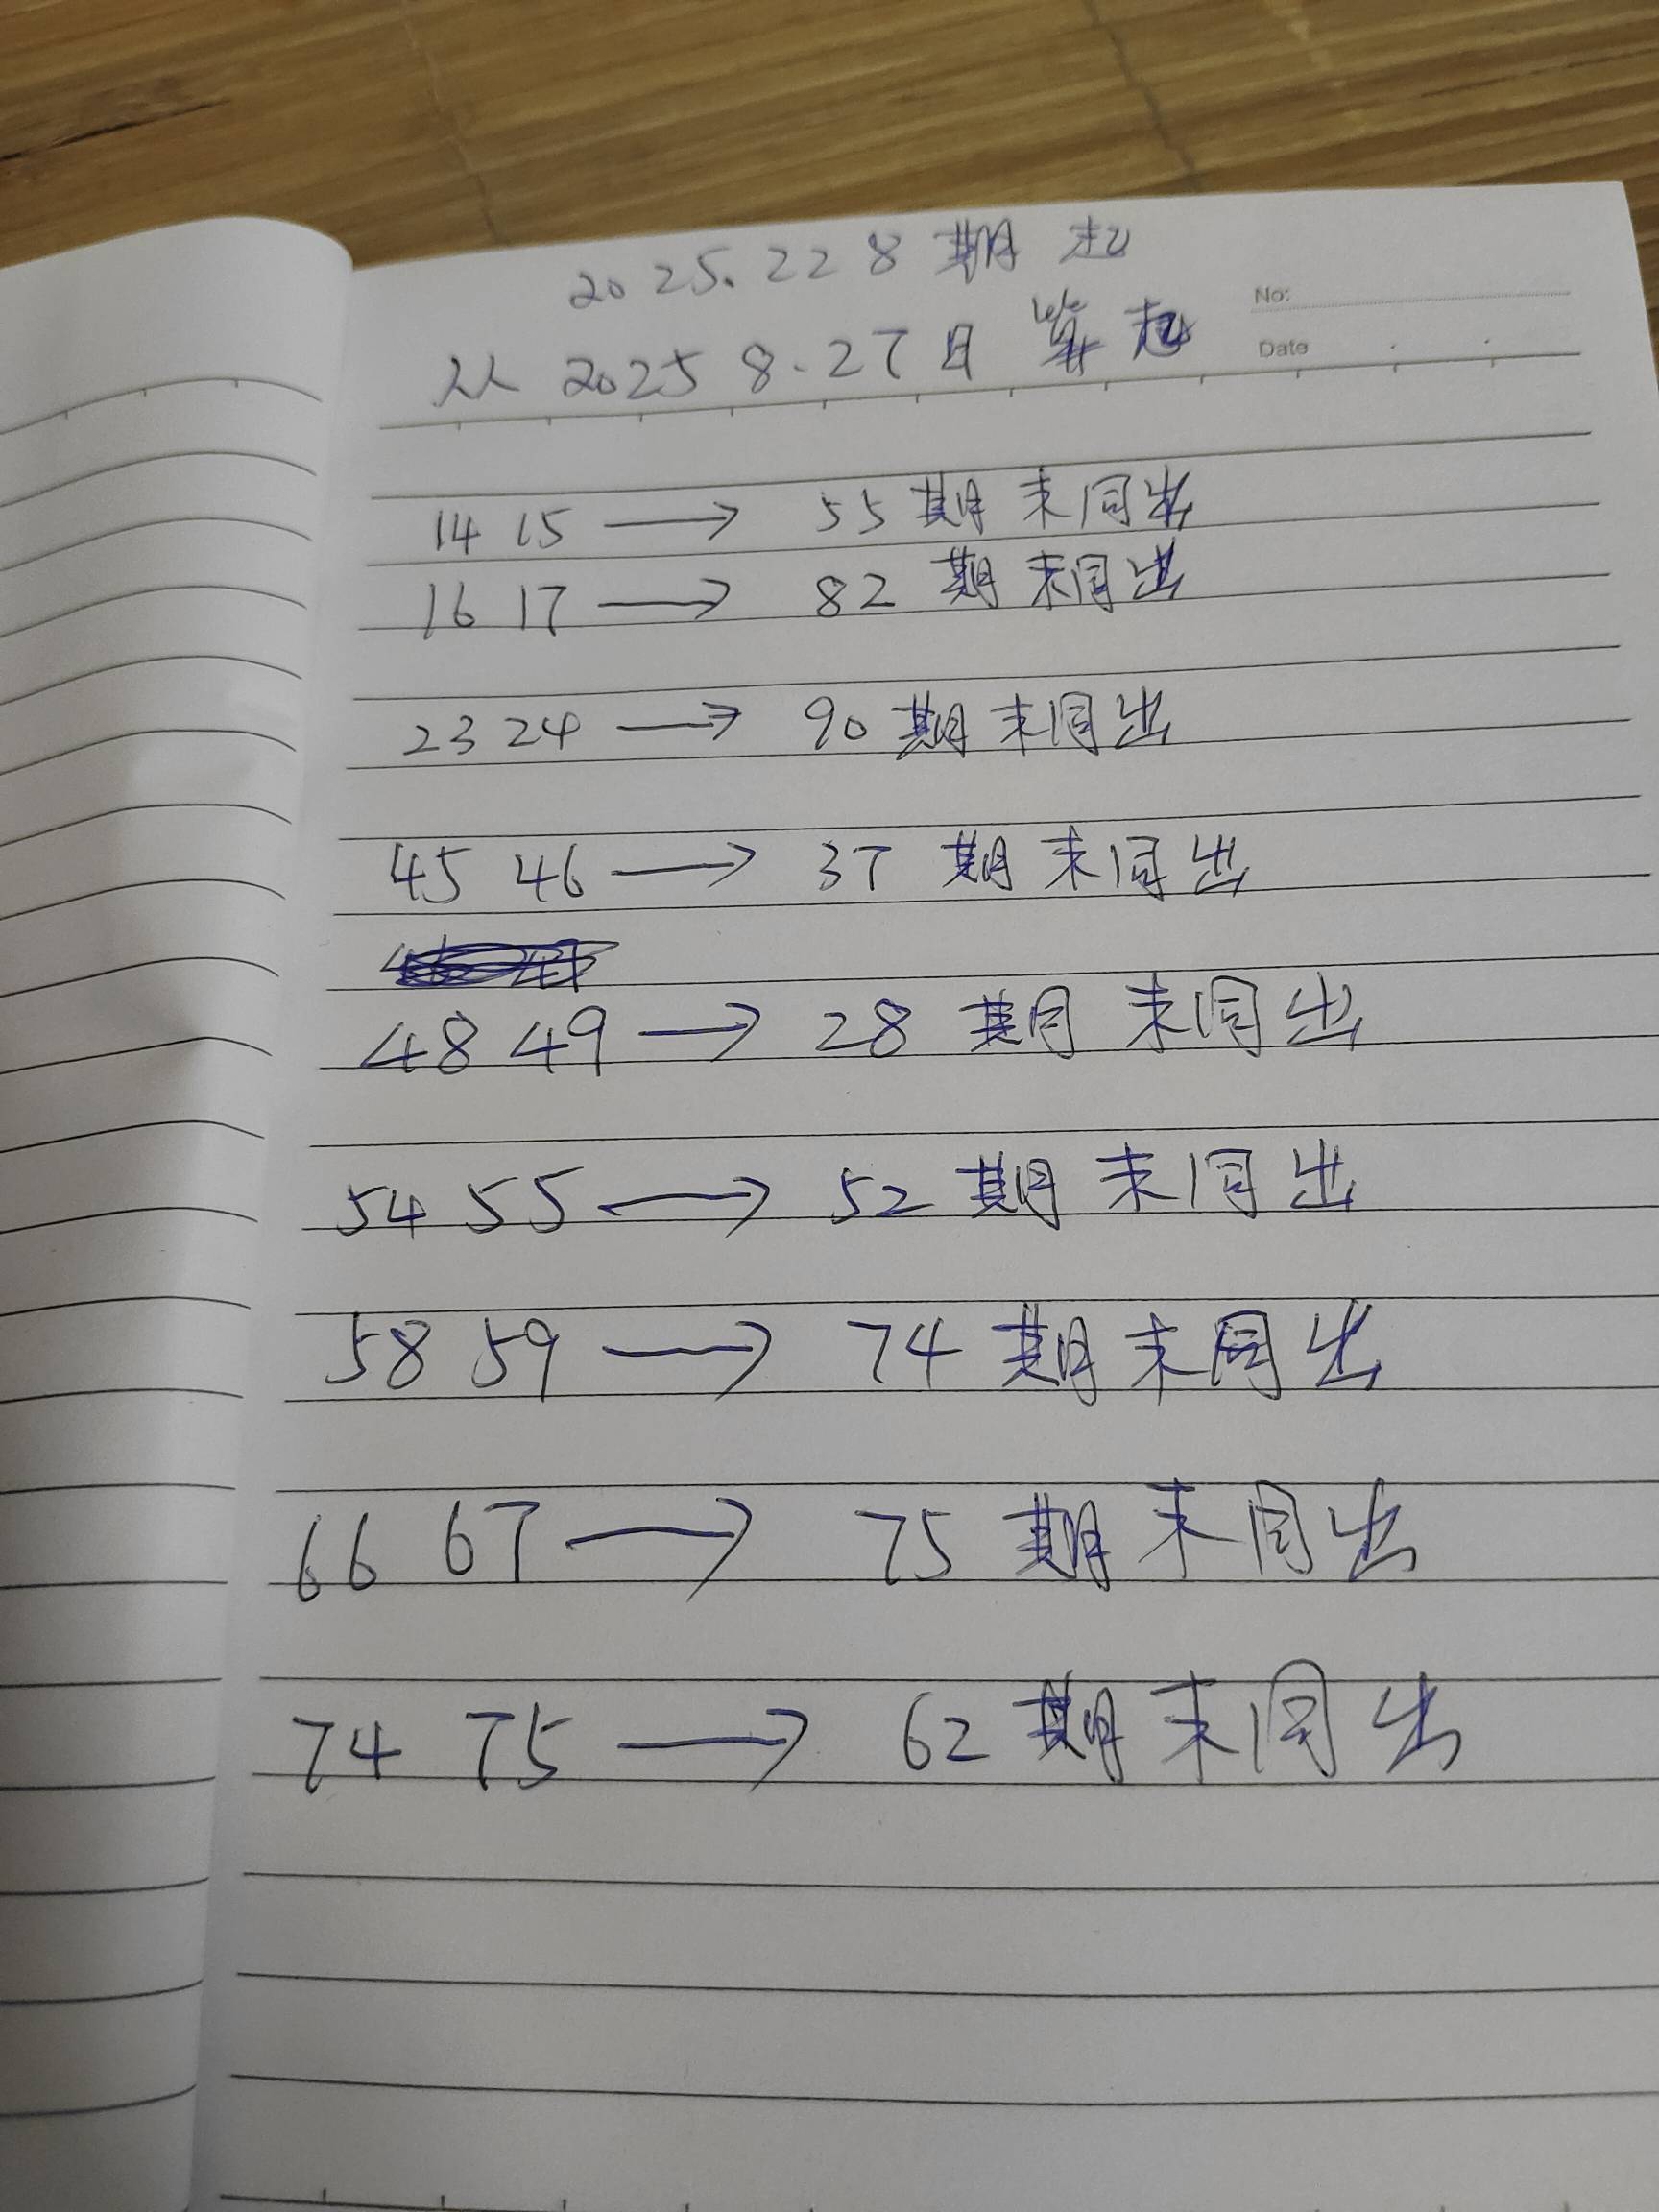 2025.228期起
No:
从 2025 8.27日 算起
Date
14 15 → 55期未同出
16 17 → 82 期未同出
23 24 → 90期未同出
45 46 → 37 期未同出
48 49 → 28 期未同出
54 55 → 52 期未同出
58 59 → 74 期未同出
66 67 → 75 期未同出
74 75 → 62期未同出